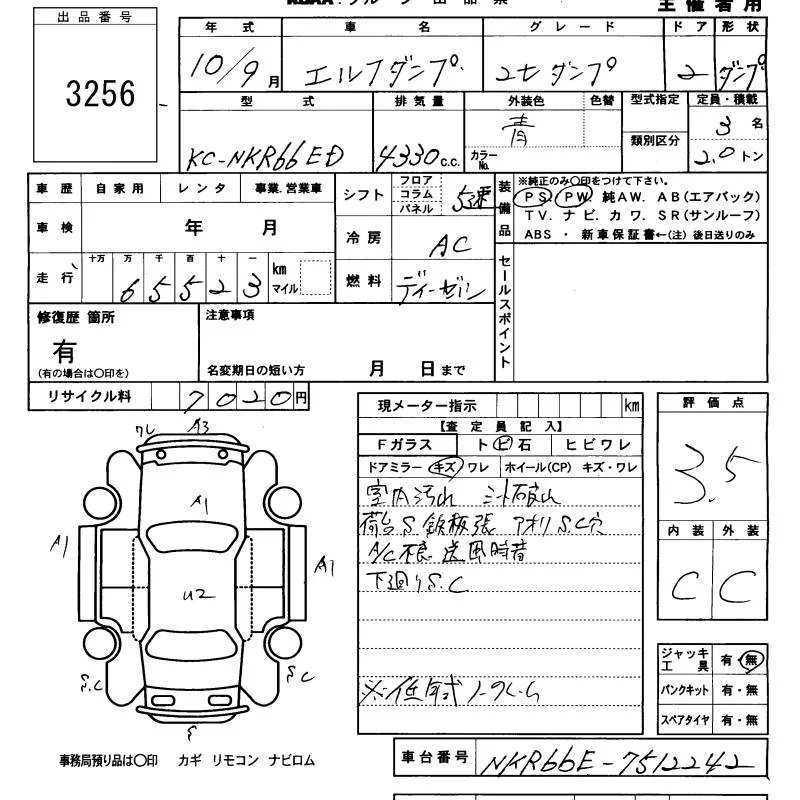 出品番号
3256
主催者用
年式 車名 グレード ドア 形状
10/9月 エルフダンプ 2t ダンプ 2 ダンプ
型式 排気量 外装色 色替 型式指定 定員・積載
KC-NKR66ED 4330c.c. 青 カラーNo. 類別区分 3名 2.0トン
車歴 自家用 レンタ 事業.営業車
車検 年 月
走行 十万 万 千 百 十 一 km マイル
6 5 5 2 3
シフト フロア コラム パネル 5速
冷房 AC
燃料 ディーゼル
装備品 ※純正のみ〇印をつけて下さい。
PS. PW. 純AW. AB(エアバック)
TV. ナビ. カワ. SR(サンルーフ)
ABS ・ 新車保証書←(注) 後日送りのみ
セールスポイント
修復歴 箇所
有
(有の場合は〇印を)
注意事項
名変期日の短い方 月 日まで
リサイクル料 7020円
現メーター指示 km
【査定員記入】
Fガラス ト ビ 石 ヒビワレ
ドアミラー キズ ワレ ホイール(CP) キズ・ワレ
室内汚れ
荷台S 鉄板張 アオリS.C穴
A/C不良 送風時音
下廻りS.C
評価点
3.5
内装 外装
C C
ワレ A3
A1
A1
A1
U2
S.C
S.C
S
ジャッキ工具 有・無
パンクキット 有・無
スペアタイヤ 有・無
事務局預り品は〇印 カギ リモコン ナビロム
車台番号 NKR66E-7512242